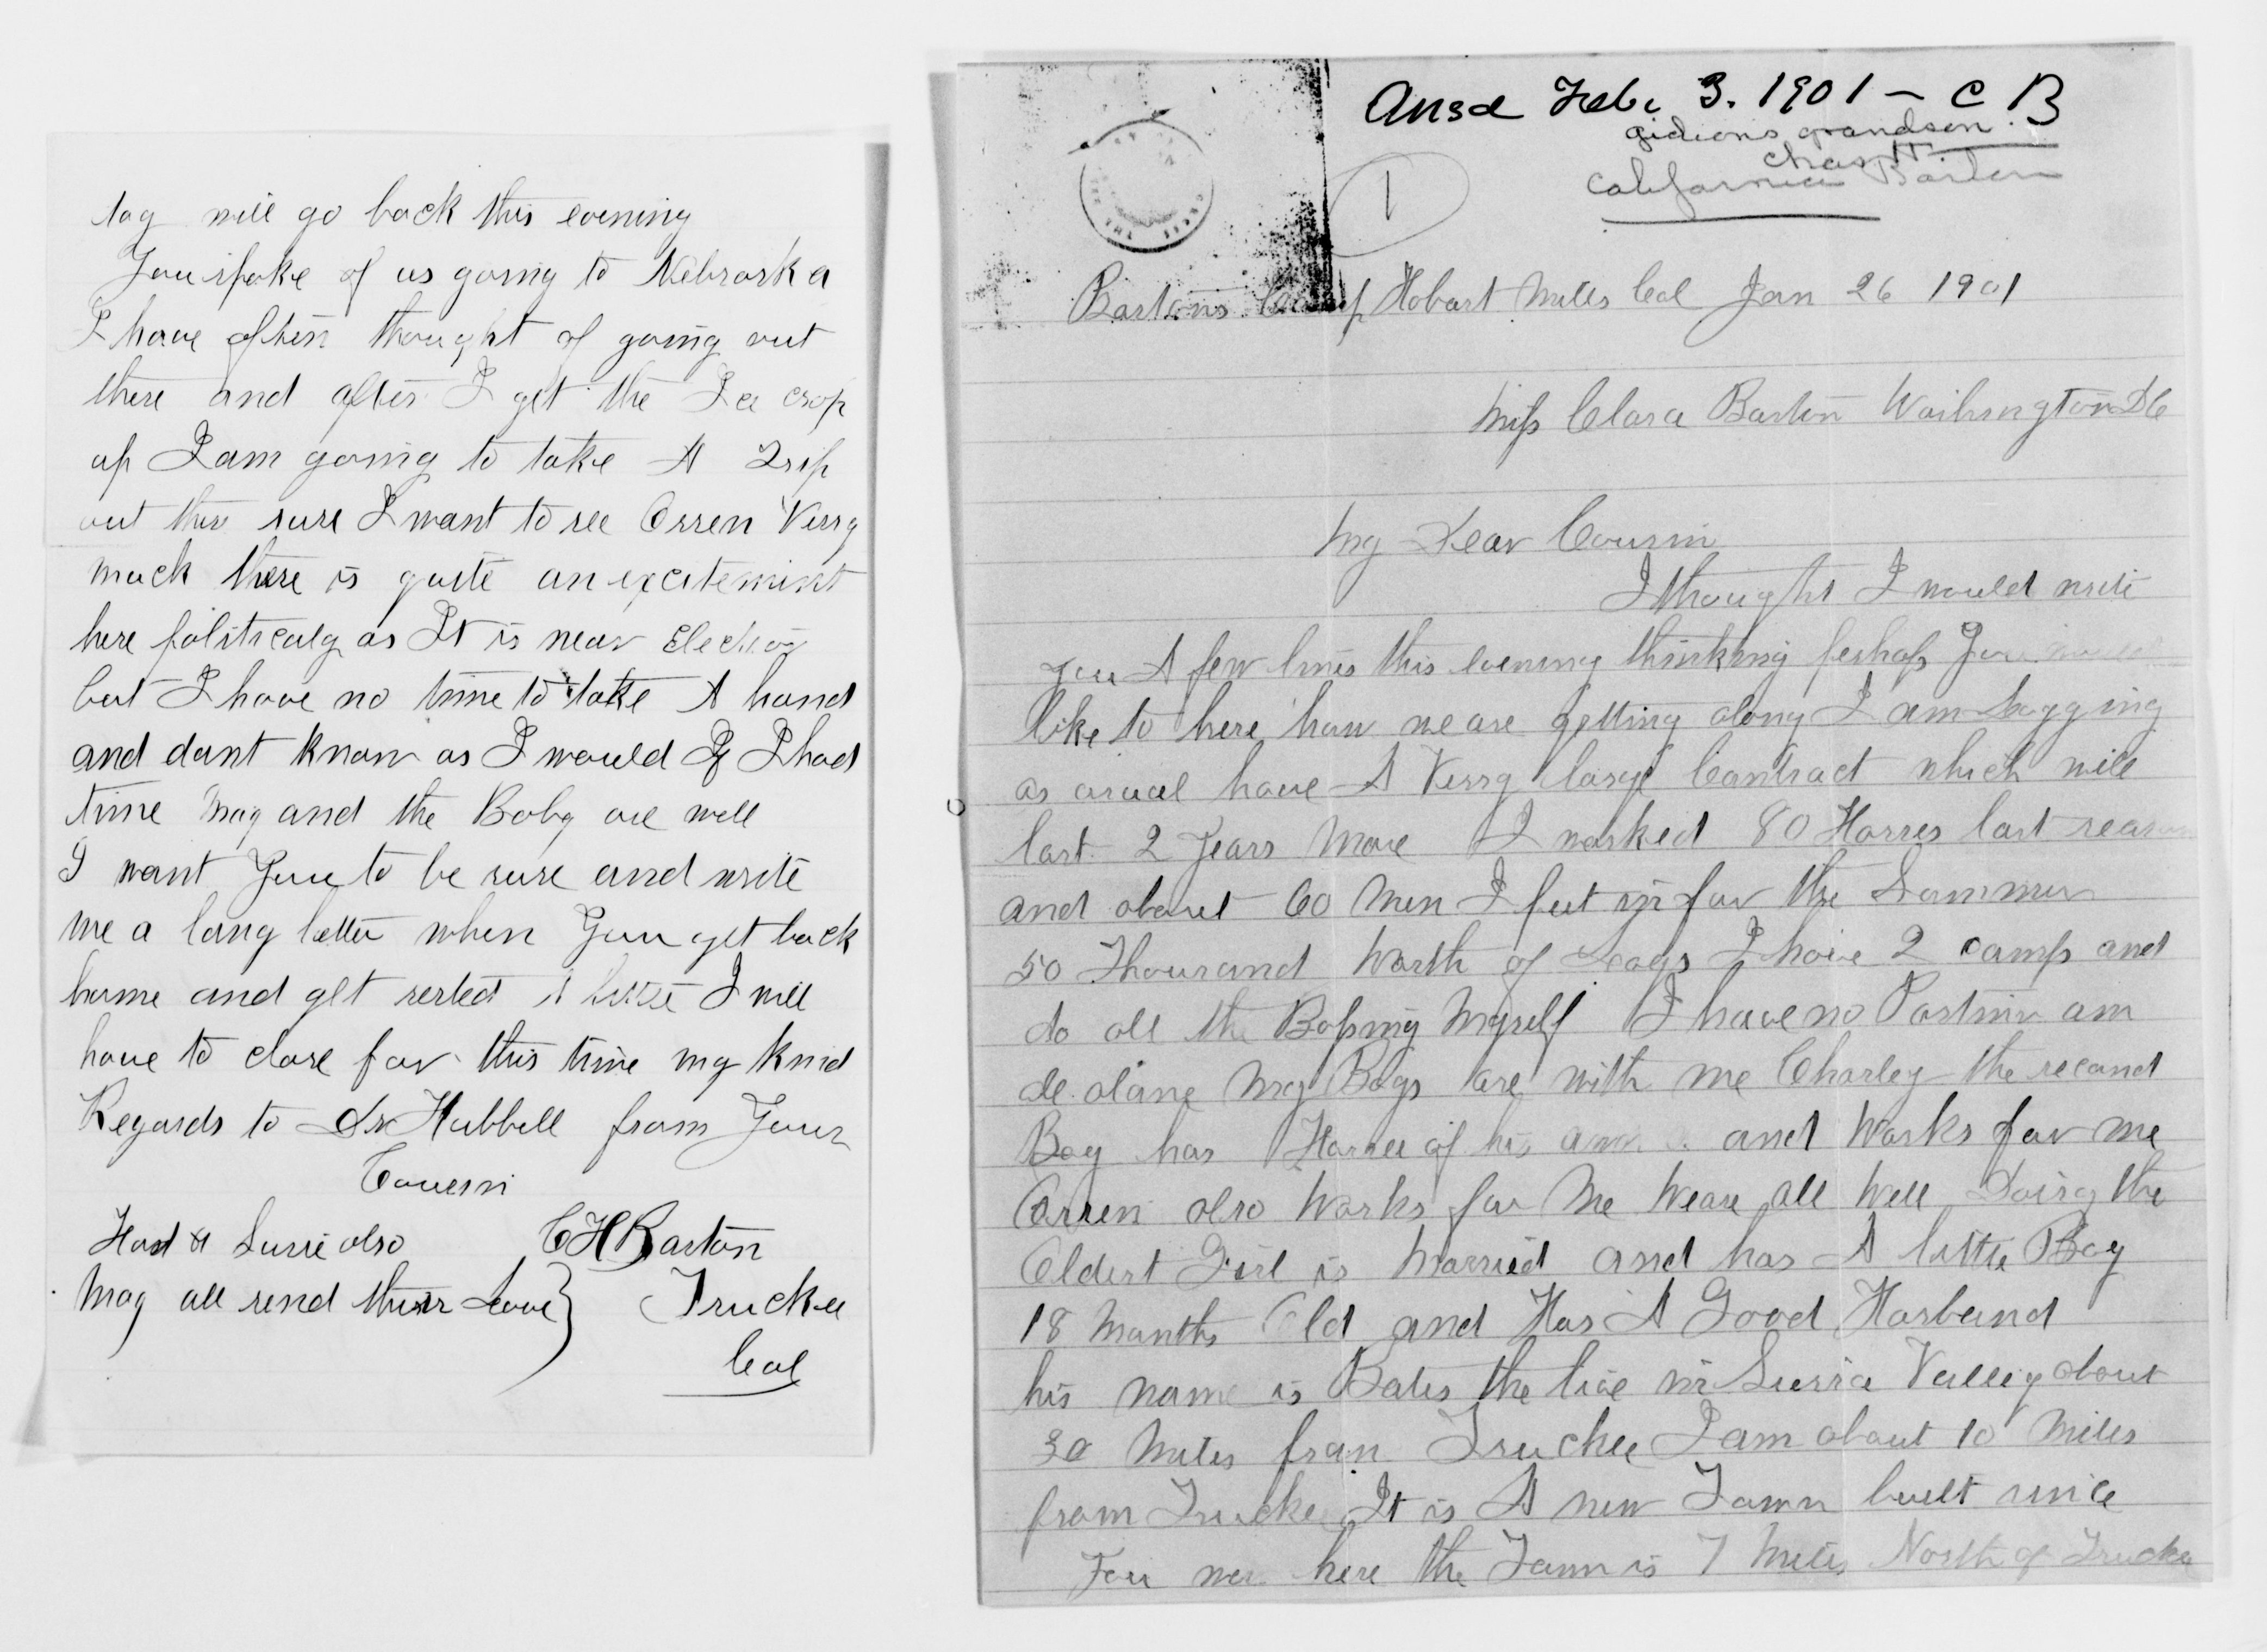 tog will go back this evening
You spoke of us going to Nebraska
I have often thought of going out
there and after I get the Ice crop
up I am going to take A Trip
out there sure I want to see Orren Verry
much there is quite an excitement
here politicaly as It is near Election
but I have no time to take A hand
and dont know as I would If I had
time Mag and the Baby are well
I want You to be sure and write
me a long letter when You get back
home and get rested A little I will
have to close for this time my kind
Regards to Dr Hubbell from Your
Cousin
Had & Susie also CHBarton
Mag all send their Love} Truckee
Cal
Ansd Feb. 3. 1901 - C B
gideons grandson
Chas H
California Barton
1
Bartons Camp Hobart Mills Cal Jan 26 1901
Miss Clara Barton Washington DC
My Dear Cousin
I thought I would write
you A few lines this evening thinking perhaps You would
like to here how we are getting along I am Logging
as usual have A Verry large Contract which will
last 2 Years More I worked 80 Horses last season
and about 60 Men I put in for the Summer
50 Thousand Worth of Logs I have 2 camps and
do all the Bossing Myself I have no Partner am
all alone My Boys are with me Charley the second
Boy has Horses of his own and Works for me
Orren also Works for Me We are all Well Doing the
Oldest Girl is Married and has A little Boy
18 Months Old and Has A Good Husband
his name is Bates the live in Sierra Valley about
30 Miles from Truckee I am about 10 Miles
from Truckee It is A new Town built since
You wer here the Town is 7 Miles North of Truckee